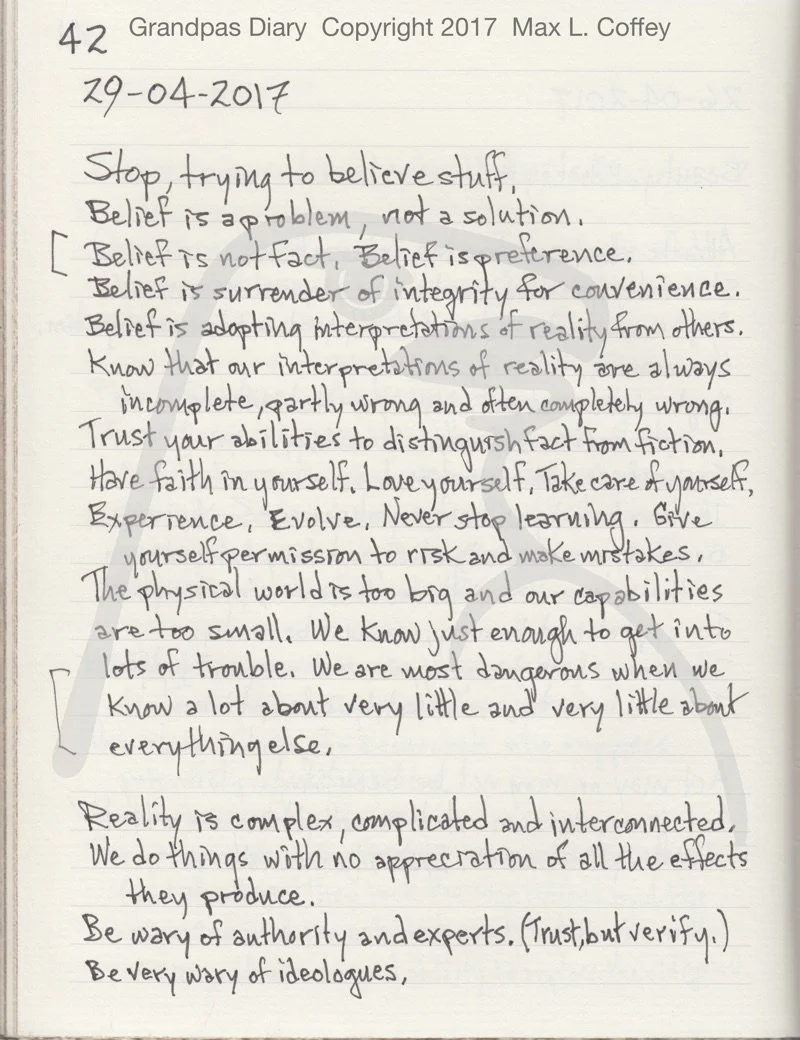 42 Grandpas Diary Copyright 2017 Max L. Coffey
29-04-2017
Stop, trying to believe stuff.
Belief is a problem, not a solution.
Belief is not fact. Belief is preference.
Belief is surrender of integrity for convenience.
Belief is adopting interpretations of reality from others.
Know that our interpretations of reality are always
incomplete, partly wrong and often completely wrong.
Trust your abilities to distinguish fact from fiction.
Have faith in yourself. Love yourself. Take care of yourself.
Experience. Evolve. Never stop learning. Give
yourself permission to risk and make mistakes.
The physical world is too big and our capabilities
are too small. We know just enough to get into
lots of trouble. We are most dangerous when we
know a lot about very little and very little about
everything else.
Reality is complex, complicated and interconnected.
We do things with no appreciation of all the effects
they produce.
Be wary of authority and experts. (Trust, but verify.)
Be very wary of ideologues.